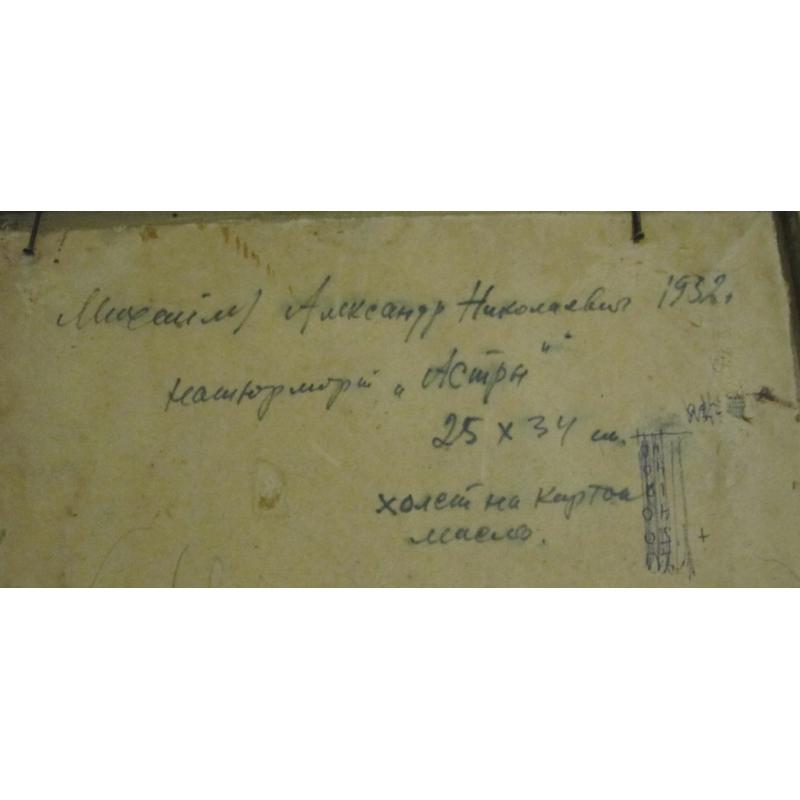 Александр Николаевич 1932.
натюрморт „Астры"
25 х 34 см.
холст на картон
масло.